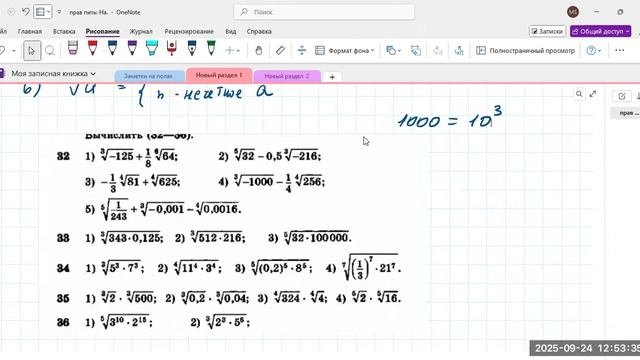 прав пить: На. • - OneNote
Поиск
MS
Файл Главная Вставка Рисование Журнал Рецензирование Вид Справка
Заметки Общий доступ
Формат фона Полноэкранный просмотр
Моя записная книжка Заметки на полях Новый раздел 1 Новый раздел 2 +
прав ...
n - нечетные a
1000 = 10³
Вычислить (32—36).
32 1) ∛-125 + 1/8 ⁶√64; 2) ⁵√32 - 0,5 ∛-216;
3) -1/3 ⁴√81 + ⁴√625; 4) ∛-1000 - 1/4 ⁴√256;
5) ⁵√1/243 + ∛-0,001 - ⁴√0,0016.
33 1) ∛343 · 0,125; 2) ∛512 · 216; 3) ⁵√32 · 100 000.
34 1) ∛5³ · 7³; 2) ⁴√11⁴ · 3⁴; 3) ⁵√(0,2)⁵ · 8⁵; 4) ⁷√(1/3)⁷ · 21⁷.
35 1) ∛2 · ∛500; 2) ∛0,2 · ∛0,04; 3) ⁴√324 · ⁴√4; 4) ⁵√2 · ⁵√16.
36 1) ⁵√3¹⁰ · 2¹⁵; 2) ∛2³ · 5⁶;
2025-09-24 12:53:35